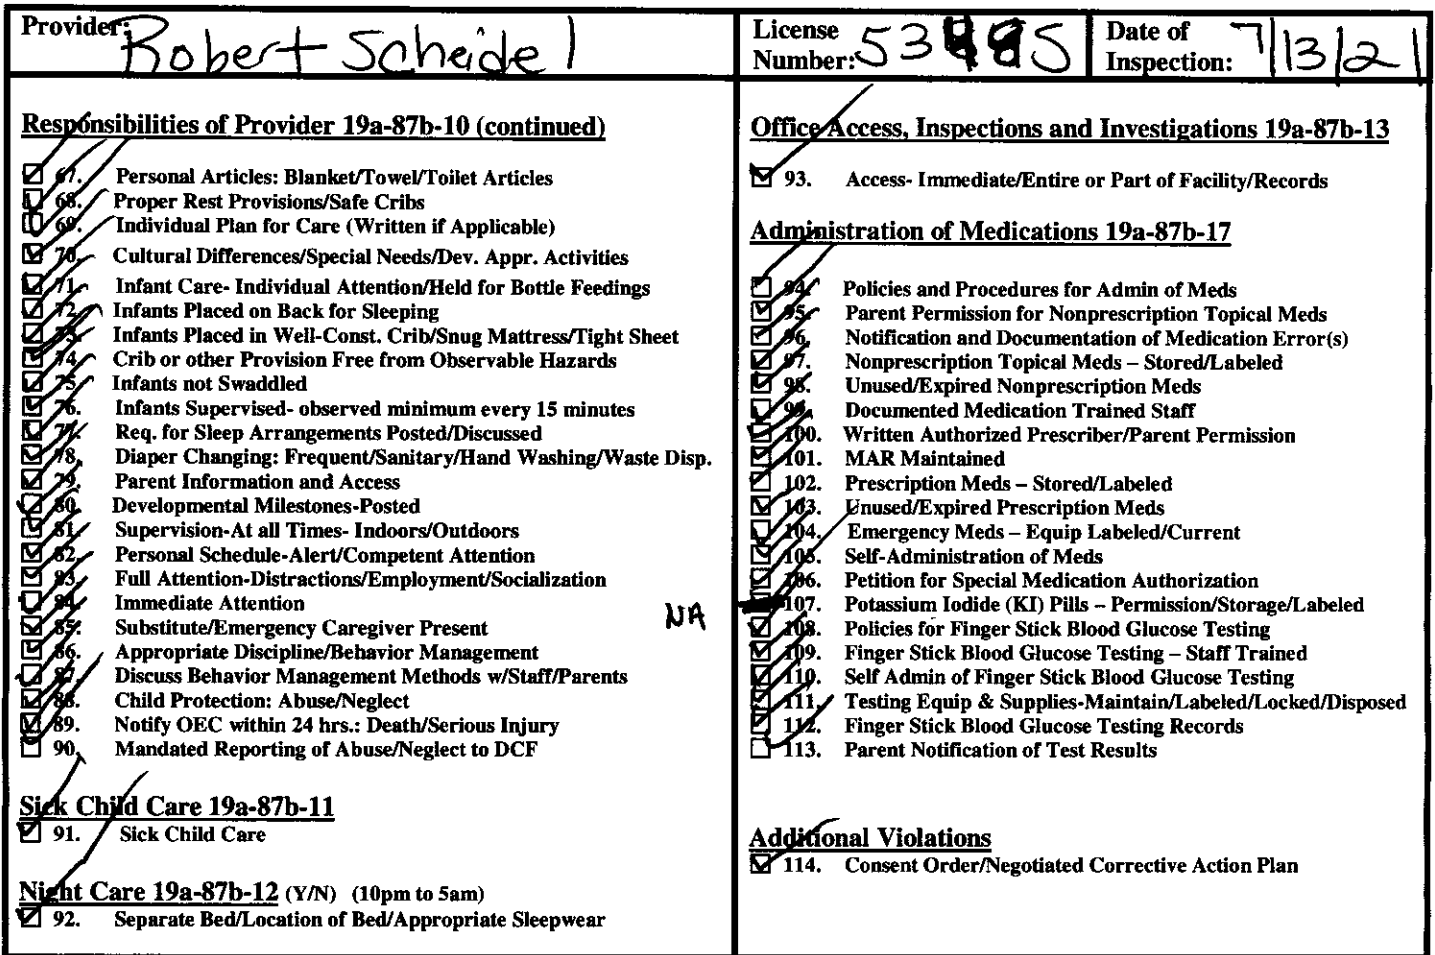 Provider: Robert Scheidel
License Number: 53485
Date of Inspection: 7/13/21
Responsibilities of Provider 19a-87b-10 (continued)
67. Personal Articles: Blanket/Towel/Toilet Articles
68. Proper Rest Provisions/Safe Cribs
69. Individual Plan for Care (Written if Applicable)
70. Cultural Differences/Special Needs/Dev. Appr. Activities
71. Infant Care- Individual Attention/Held for Bottle Feedings
72. Infants Placed on Back for Sleeping
73. Infants Placed in Well-Const. Crib/Snug Mattress/Tight Sheet
74. Crib or other Provision Free from Observable Hazards
75. Infants not Swaddled
76. Infants Supervised- observed minimum every 15 minutes
77. Req. for Sleep Arrangements Posted/Discussed
78. Diaper Changing: Frequent/Sanitary/Hand Washing/Waste Disp.
79. Parent Information and Access
80. Developmental Milestones-Posted
81. Supervision-At all Times- Indoors/Outdoors
82. Personal Schedule-Alert/Competent Attention
83. Full Attention-Distractions/Employment/Socialization
84. Immediate Attention
85. Substitute/Emergency Caregiver Present
86. Appropriate Discipline/Behavior Management
87. Discuss Behavior Management Methods w/Staff/Parents
88. Child Protection: Abuse/Neglect
89. Notify OEC within 24 hrs.: Death/Serious Injury
90. Mandated Reporting of Abuse/Neglect to DCF
Sick Child Care 19a-87b-11
91. Sick Child Care
Night Care 19a-87b-12 (Y/N) (10pm to 5am)
92. Separate Bed/Location of Bed/Appropriate Sleepwear
Office Access, Inspections and Investigations 19a-87b-13
93. Access- Immediate/Entire or Part of Facility/Records
Administration of Medications 19a-87b-17
94. Policies and Procedures for Admin of Meds
95. Parent Permission for Nonprescription Topical Meds
96. Notification and Documentation of Medication Error(s)
97. Nonprescription Topical Meds – Stored/Labeled
98. Unused/Expired Nonprescription Meds
99. Documented Medication Trained Staff
100. Written Authorized Prescriber/Parent Permission
101. MAR Maintained
102. Prescription Meds – Stored/Labeled
103. Unused/Expired Prescription Meds
104. Emergency Meds – Equip Labeled/Current
105. Self-Administration of Meds
106. Petition for Special Medication Authorization
NA 107. Potassium Iodide (KI) Pills – Permission/Storage/Labeled
108. Policies for Finger Stick Blood Glucose Testing
109. Finger Stick Blood Glucose Testing – Staff Trained
110. Self Admin of Finger Stick Blood Glucose Testing
111. Testing Equip & Supplies-Maintain/Labeled/Locked/Disposed
112. Finger Stick Blood Glucose Testing Records
113. Parent Notification of Test Results
Additional Violations
114. Consent Order/Negotiated Corrective Action Plan